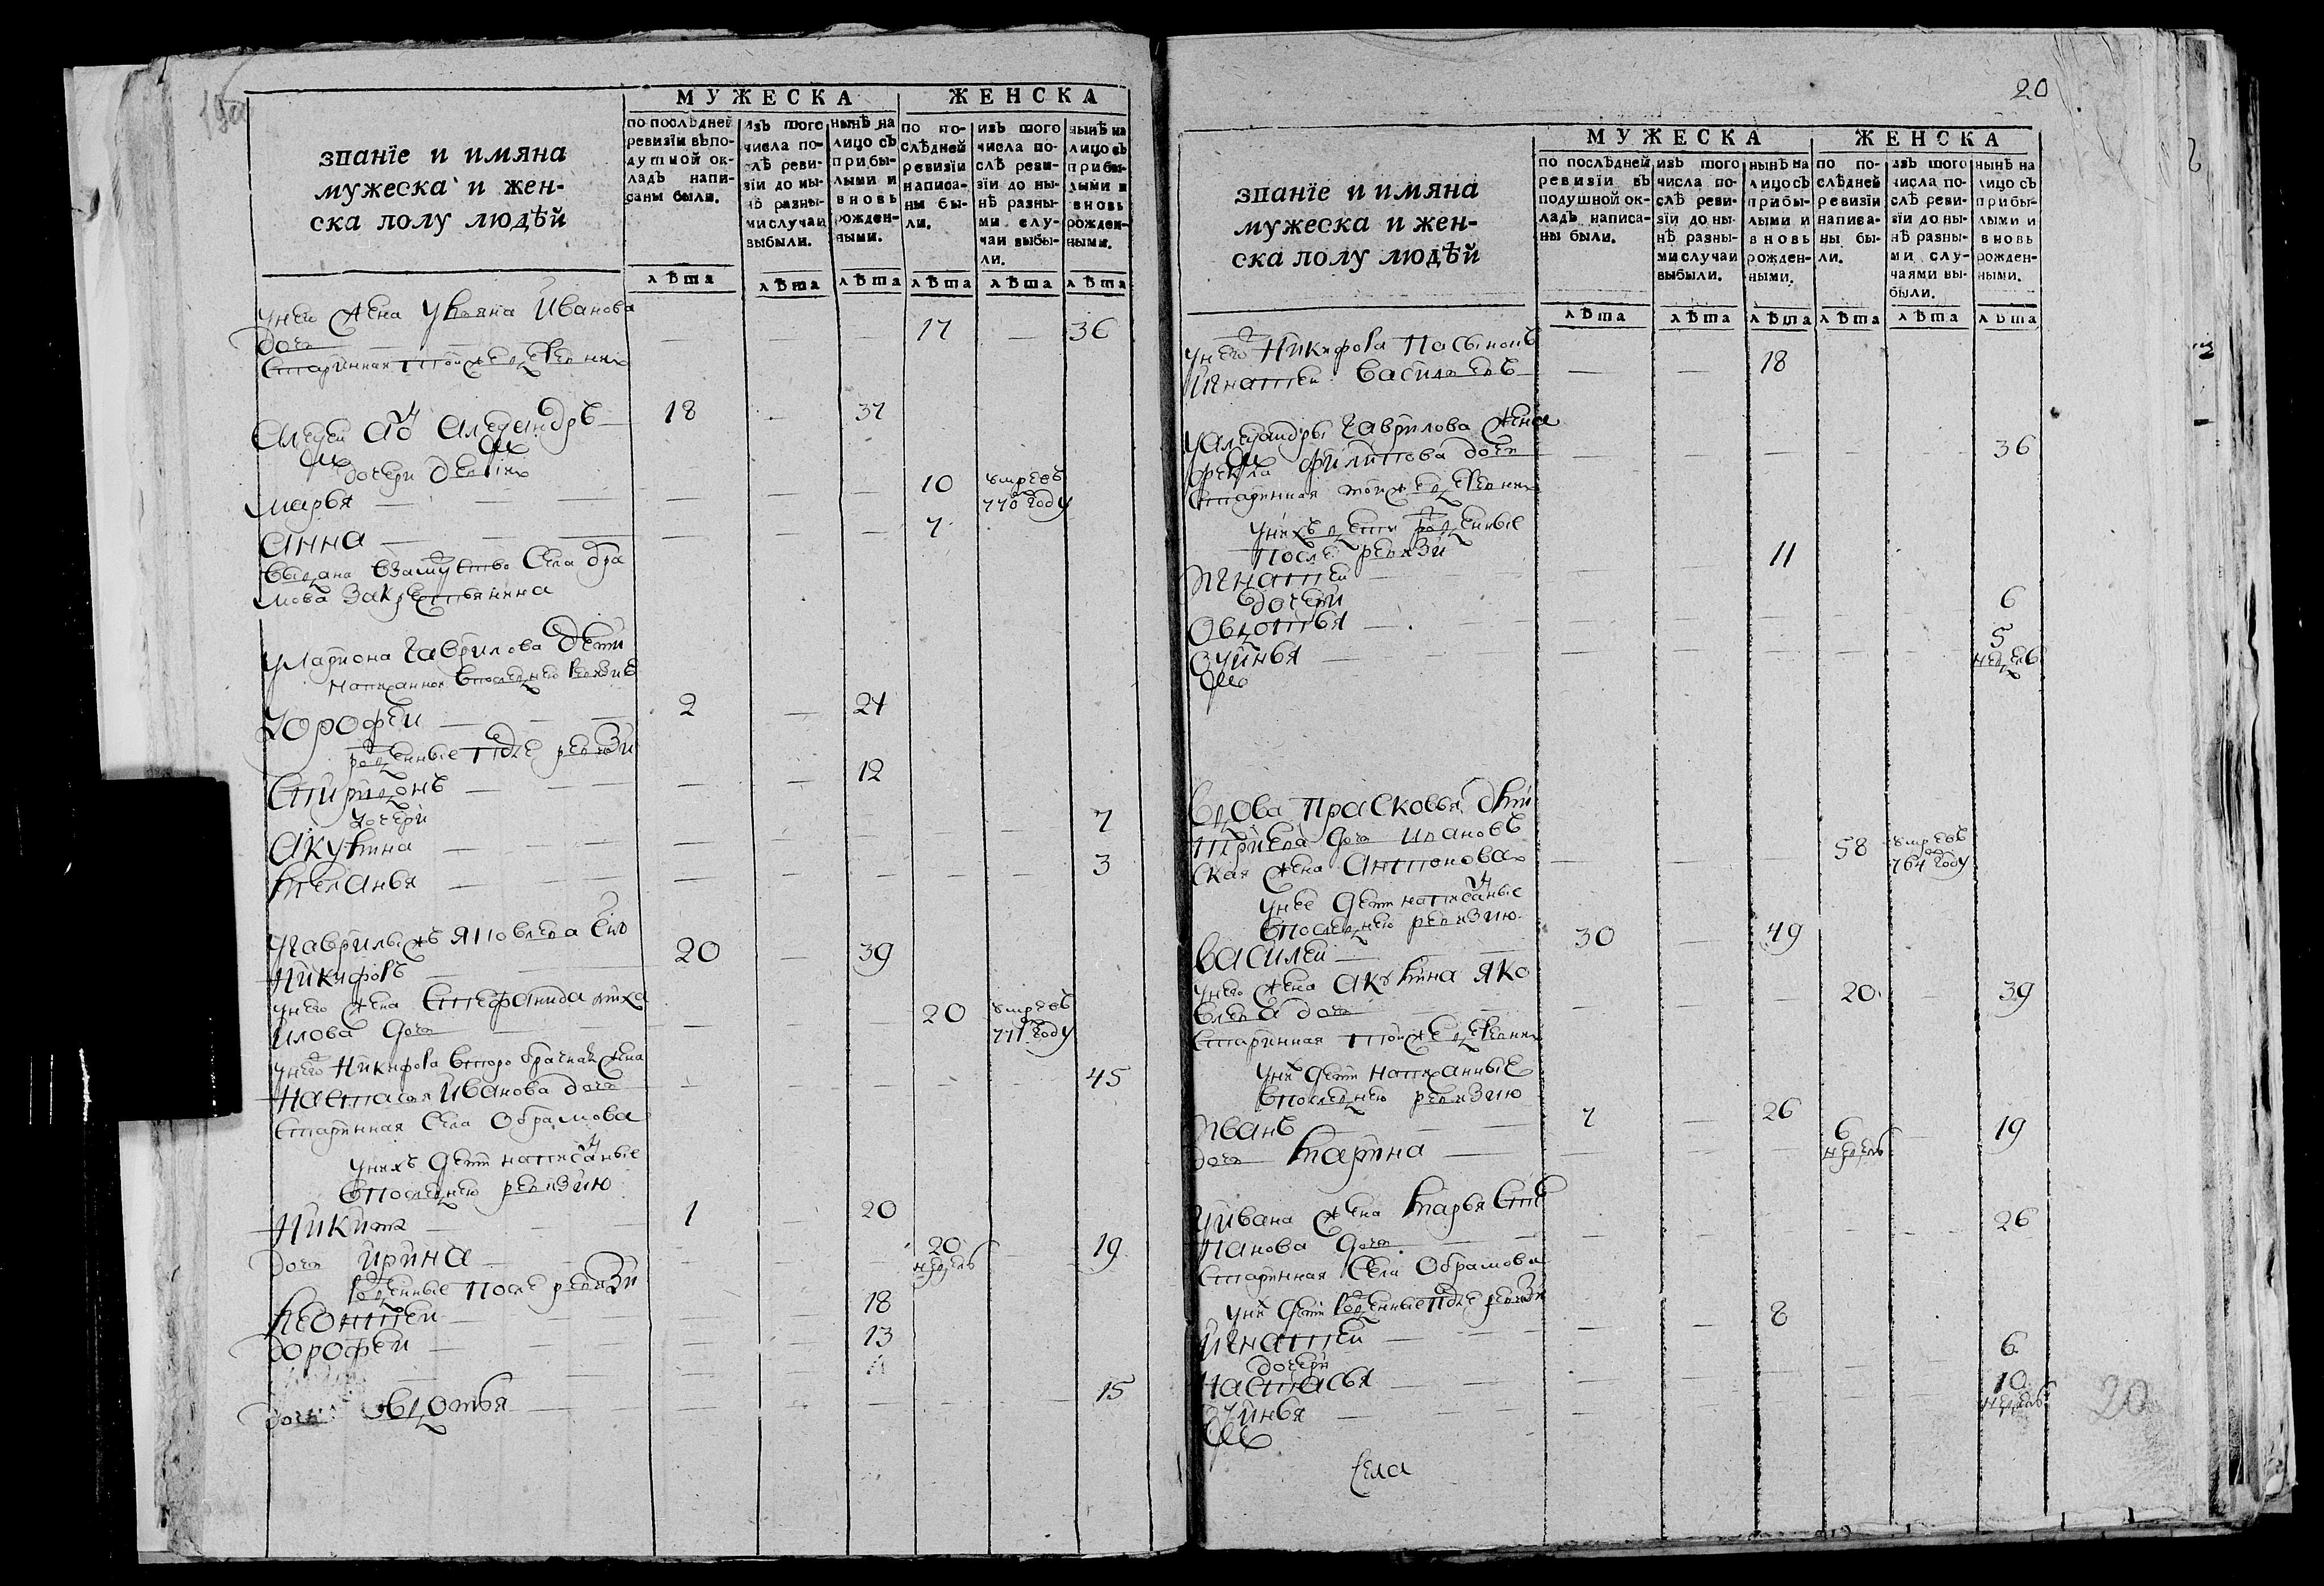 МУЖЕСКА ЖЕНСКА
званїе и имяна
мужеска и жен-
ска полу людѣй
по послѣдней
ревизїи въ по-
душной ок-
ладъ напи-
саны были.
изъ того
числа по-
слѣ реви-
зїи до ны-
нѣ разны-
ми случаи
выбыли.
нынѣ на
лицо съ
прибы-
лыми и
вновь
рожден-
ными.
по по-
слѣдней
ревизїи
написа-
ны бы-
ли.
изъ того
числа по-
слѣ реви-
зїи до ны-
нѣ разны-
ми слу-
чаи выбы-
ли.
нынѣ на
лицо съ
прибы-
лыми и
вновь
рожден-
ными.
лѣта лѣта лѣта лѣта лѣта лѣта
у нево жена Ульяна Иванова
дочь — — — 17 — 36
старинная той же деревни
18 — 37
дочери девки
марья — — — 10 умре въ
770 году
анна — — — 7
выдана взамуство села Обра
мова за крестьянина
у лариона гаврилова дети
написанной в последнею ревизию
дорофеи — 2 — 24
рожденные после ревизи
спиридонъ — — — 12
дочери
акулина — — — 7
меланья — — — 3
у гаврилы жъ яковлева сынъ
никифоръ — 20 — 39
у нево жена стефанида миха
илова дочь — — — 20 умре въ
771 году
у нево никифора второбрачная жена
настасья иванова дочь — — — 45
старинная села Обрамова
у нихъ дети написаные
в последнею ревизию
никита — 1 — 20
дочь ирина — — — 20 — 19
недель
рожденные после ревизи
леонтей — — — 18
дорофеи — — — 13
дочь овдотья — — — 15
20
МУЖЕСКА ЖЕНСКА
званїе и имяна
мужеска и жен-
ска полу людѣй
по послѣдней
ревизїи въ
подушной ок-
ладъ написа-
ны были.
изъ того
числа по-
слѣ реви-
зїи до ны-
нѣ разны-
ми случаи
выбыли.
нынѣ на
лицо съ
прибы-
лыми и
вновь
рожден-
ными.
по по-
слѣдней
ревизїи
написа-
ны бы-
ли.
изъ того
числа по-
слѣ реви-
зїи до ны-
нѣ разны-
ми слу-
чаями вы-
были.
нынѣ на
лицо съ
прибы-
лыми и
вновь
рожден-
ными.
лѣта лѣта лѣта лѣта лѣта лѣта
у нево никифора пасынокъ
игнатей васильевъ — — 18
у александры гаврилова жена
фекла филипова дочь — — — 36
старинная той же деревни
у нихъ дети рожденные
после ревизи
игнатей — — 11
дочери
овдотья — — — 6
— — — 5
недель
вдова прасковья дми
триева дочь ивановъ
ская жена антонова — — — 58 умре въ
764 году
у нее дети написаные
в последнею ревизию
василей — 30 — 49
у нево жена акулина яко
влева дочь — — — 20 39
старинная той же деревни
у них дети написанные
в последнею ревизию
иванъ — 7 — 26
дочь марина — — — 6 — 19
недель
у ивана жена марья сте
панова дочь — — — 26
старинная села Обрамова
у них дети рожденные после ревизи
игнатей — — 8
дочери
настасья — — — 6
— — — 10
недель
20
села